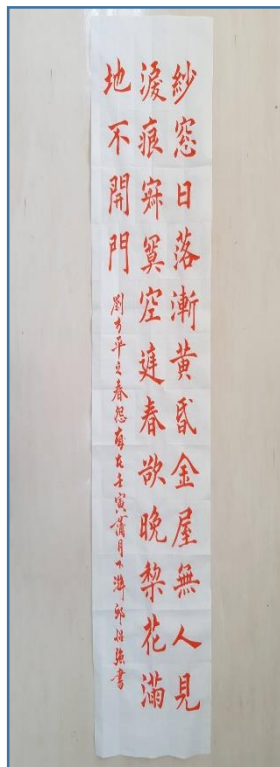 紗窓日落漸黃昏金屋無人見
淚痕寂寞空庭春欲晚梨花滿
地不開門
劉方平之春怨歲在壬寅蒲月下澣邱書